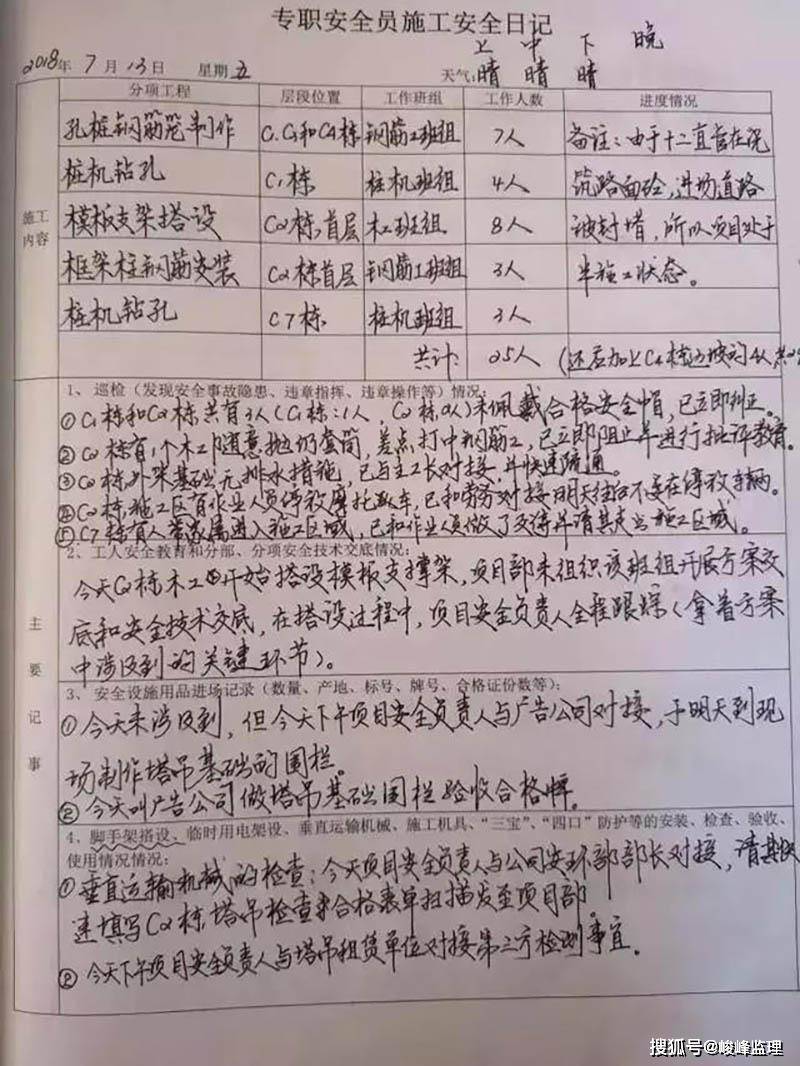 专职安全员施工安全日记
上 中 下 晚
2018年 7月13日 星期五 天气:晴 晴 晴
分项工程 层段位置 工作班组 工作人数 进度情况
施工内容
孔桩钢筋笼制作 C1和C4栋 钢筋工班组 7人 备注:由于十二直管在浇
桩机钻孔 C1栋 桩机班组 4人 筑路面砼,进场道路
模板支架搭设 C2栋首层 木工班组 8人 被封堵,所以项目处于
框架柱钢筋安装 C2栋首层 钢筋工班组 3人 半施工状态。
桩机钻孔 C7栋 桩机班组 3人
共计: 25人 (还应加上C4栋边坡的4人
主要记事
1、巡检(发现安全事故隐患、违章指挥、违章操作等)情况
①C1栋和C2栋共有3人(C1栋:1人,C2栋2人)未佩戴合格安全帽,已立即纠正。
②C2栋有1个木工随意抛扔套筒,差点打中钢筋工,已立即阻止并进行批评教育。
③C2栋外架基础无排水措施,已与主工长对接,并快速疏通。
④C2栋施工区有作业人员停放摩托车,已和劳务对接明天往后不要在停放车辆。
⑤C7栋有人带家属进入施工区域,已和作业人员做了交待并请其走出施工区域。
2、工人安全教育和分部、分项安全技术交底情况:
今天C2栋木工开始搭设模板支撑架,项目部未组织该班组开展方案交
底和安全技术交底,在搭设过程中,项目安全负责人全程跟踪(拿着方案
中涉及到的关键环节)。
3、安全设施用品进场记录(数量、产地、标号、牌号、合格证份数等):
①今天未涉及到,但今天下午项目安全负责人与广告公司对接,于明天到现
场制作塔吊基础的围栏。
②今天叫广告公司做塔吊基础围栏验收合格牌。
4、脚手架搭设、临时用电架设、垂直运输机械、施工机具、“三宝”、“四口”防护等的安装、检查、验收、
使用情况情况:
①垂直运输机械的检查:今天项目安全负责人与公司安环部部长对接,请其快
速填写C2栋塔吊检查合格表单扫描发至项目部。
②今天下午项目安全负责人与塔吊租赁单位对接第三方检测事宜。
搜狐号@峻峰监理